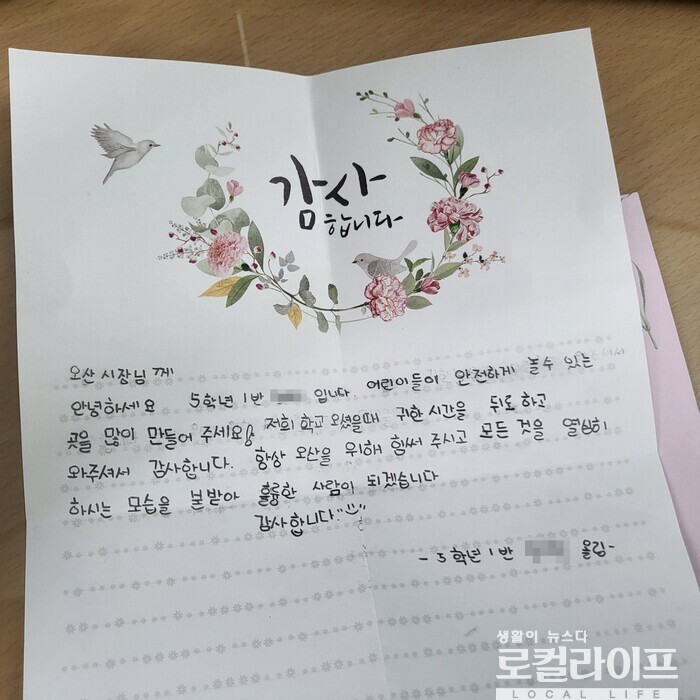 감사
합니다
오산 시장님께
안녕하세요 5학년 1반 입니다. 어린이들이 안전하게 놀수 있는
곳을 많이 만들어 주세요 저희 학교 오셨을때 귀한 시간을 뒤로 하고
와주셔서 감사합니다. 항상 오산을 위해 힘써 주시고 모든 것을 열심히
하시는 모습을 본받아 훌륭한 사람이 되겠습니다
감사합니다.
- 5학년 1반 올림-
생활이 뉴스다
로컬라이프
LOCAL LIFE